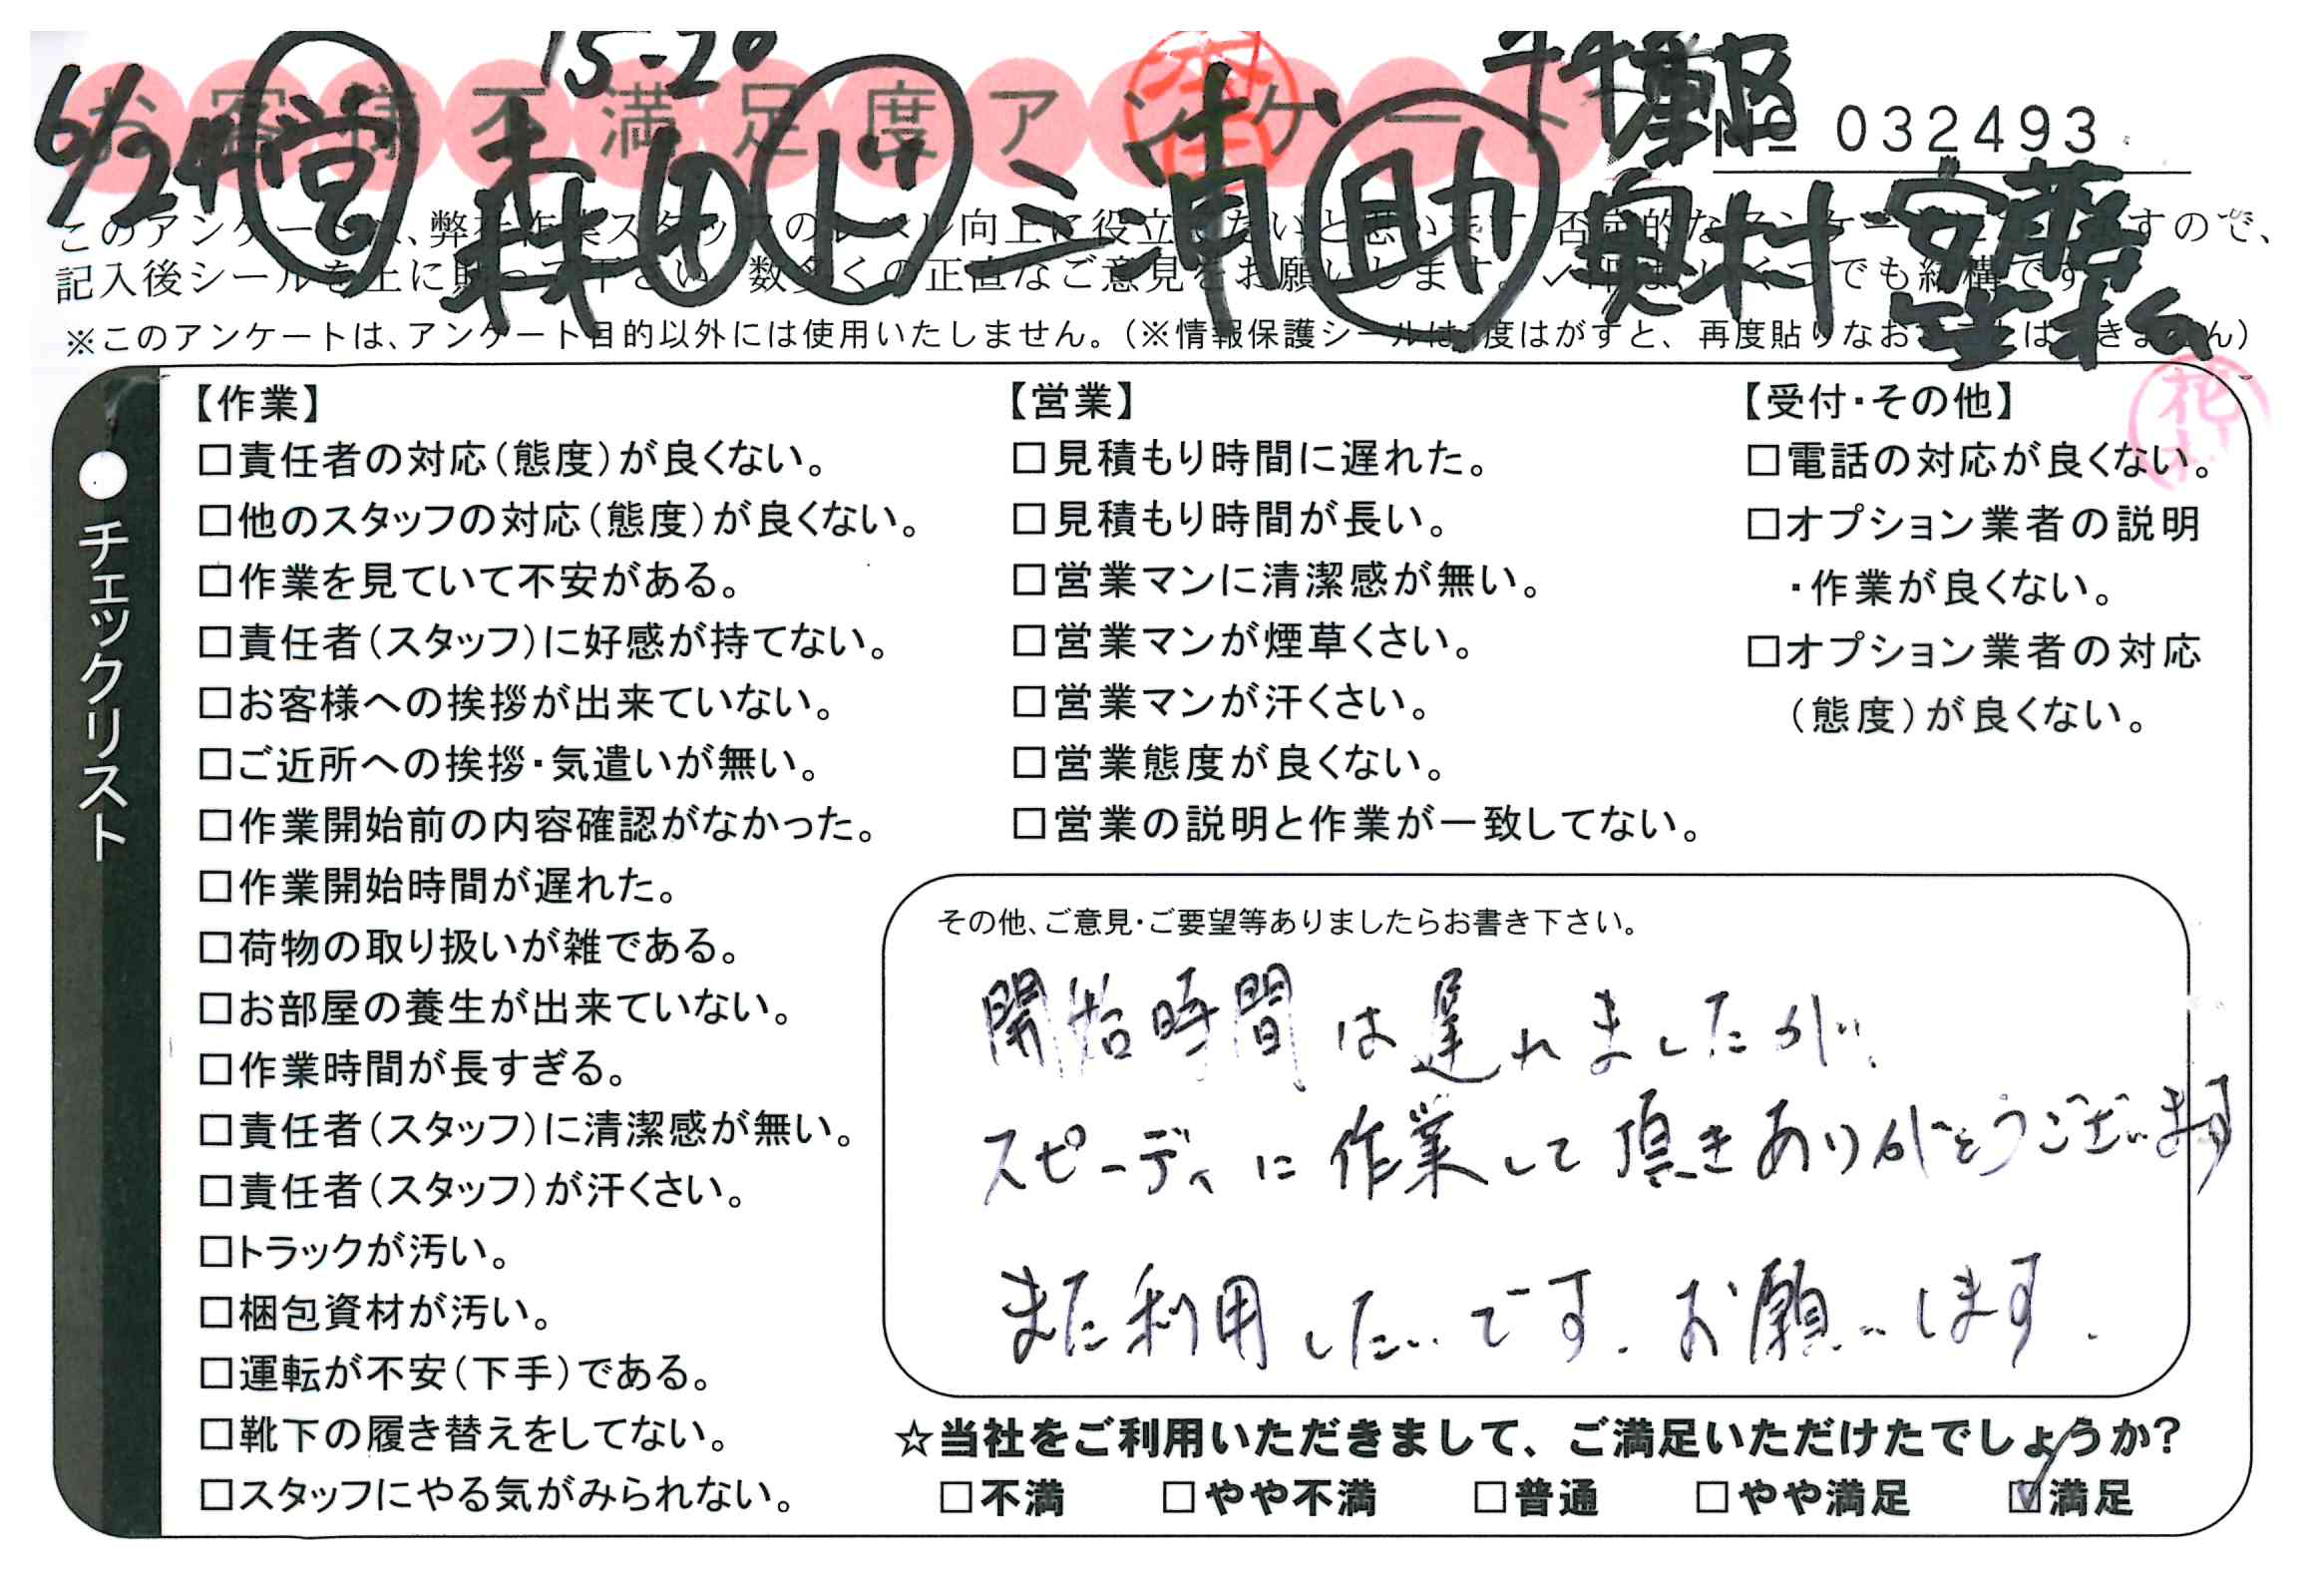 15-20
6/24 営 森田 ド 三浦 助 奥村 安藤 笠松
お客様不満足度アンケート
No 032493
このアンケートは、弊社作業スタッフのレベル向上に役立てたいと思います。否定的なアンケートになりますので、
記入後シールを上に貼って下さい。数多くの正直なご意見をお願いします。✓印は、いくつでも結構です。
※このアンケートは、アンケート目的以外には使用いたしません。(※情報保護シールは1度はがすと、再度貼りなおすことはできません)
●チェックリスト
【作業】
□責任者の対応(態度)が良くない。
□他のスタッフの対応(態度)が良くない。
□作業を見ていて不安がある。
□責任者(スタッフ)に好感が持てない。
□お客様への挨拶が出来ていない。
□ご近所への挨拶・気遣いが無い。
□作業開始前の内容確認がなかった。
□作業開始時間が遅れた。
□荷物の取り扱いが雑である。
□お部屋の養生が出来ていない。
□作業時間が長すぎる。
□責任者(スタッフ)に清潔感が無い。
□責任者(スタッフ)が汗くさい。
□トラックが汚い。
□梱包資材が汚い。
□運転が不安(下手)である。
□靴下の履き替えをしてない。
□スタッフにやる気がみられない。
【営業】
□見積もり時間に遅れた。
□見積もり時間が長い。
□営業マンに清潔感が無い。
□営業マンが煙草くさい。
□営業マンが汗くさい。
□営業態度が良くない。
□営業の説明と作業が一致してない。
【受付・その他】
□電話の対応が良くない。
□オプション業者の説明
・作業が良くない。
□オプション業者の対応
(態度)が良くない。
その他、ご意見・ご要望等ありましたらお書き下さい。
開始時間は遅れましたが、
スピーディに作業して頂きありがとうございます
また利用したいです。お願いします。
☆当社をご利用いただきまして、ご満足いただけたでしょうか?
□不満 □やや不満 □普通 □やや満足 ☑満足